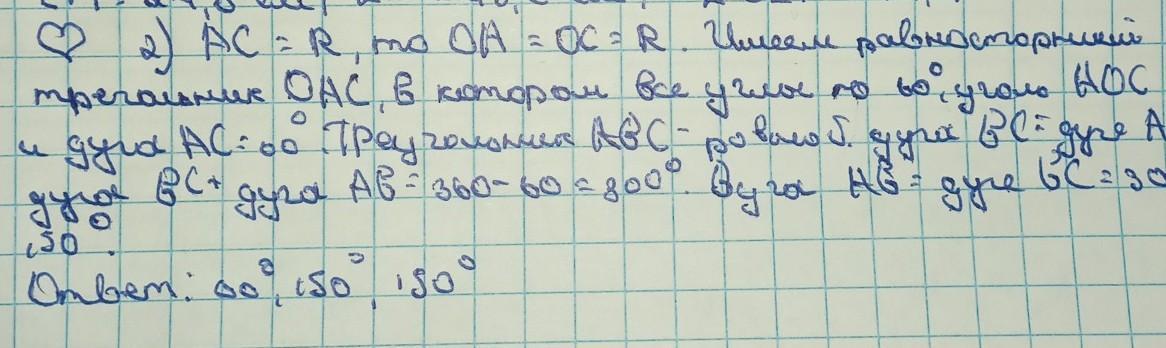 2) AC = R, то OA = OC = R. Имеем равносторонний
треугольник OAC, в котором все углы по 60°, угол AOC
и дуга AC = 60°. Треугольник ABC - равноб. дуга BC = дуге A
дуга BC + дуга AB = 360 - 60 = 300°. Дуга AB = дуге BC = 30
150°.
Ответ: 60°, 150°, 150°